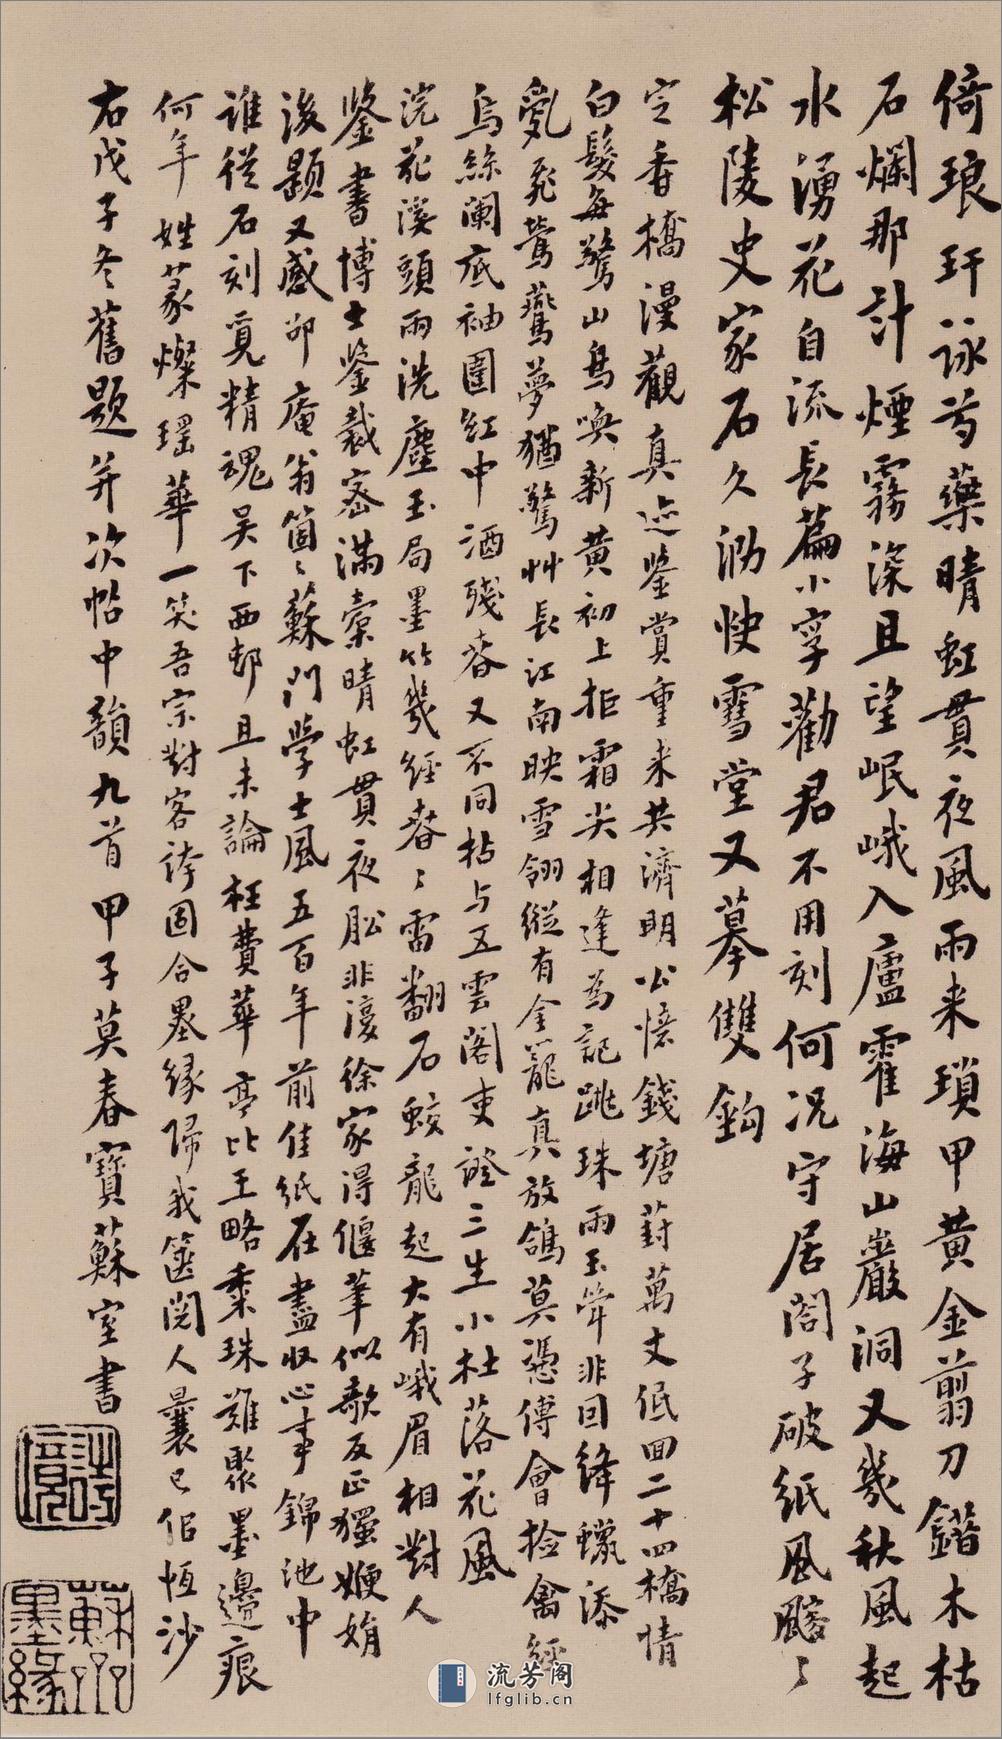 倚琅玕詠芍藥晴虹貫夜風雨来瑣甲黃金翦刀鐕木枯
石爛那計煙霧深且望岷峨入廬霍海山巖洞又幾秋風起
水湧花自流長篇小字勸君不用刻何況守居閤子破紙風飂〻
松陵史家石久泐快雪堂又摹雙鉤
定香橋漫觀真迹鑒賞重来共濟明公憶錢塘葑萬丈低回二十四橋情
白髮每驚山鳥喚新黃初上拒霜尖相逢為記跳珠雨玉聲非回絳蠟添
亂飛鶯燕夢猶驚艸長江南映雪翎縱有金籠真放鴿莫憑傅會檢禽經
烏絲闌底袖圍紅中酒殘春又不同拈与五雲閣吏證三生小杜落花風
浣花溪頭雨洗塵玉局墨竹幾經春〻雷翻石蛟龍起大有峨眉相對人
鑒書博士鑒裁密滿橐晴虹貫夜舩非濠徐家得偃筆似欹反正獨娉婷
後題又感邵庵翁箇〻蘇門學士風五百年前佳紙在盡收心事錦池中
誰從石刻覓精魂吴下西邨且未論枉費華亭比王略乘珠難聚墨邊痕
何年姓篆燦瑤華一笑吾宗對客誇固合墨緣歸我篋閱人曩已侶恆沙
右戊子冬舊題并次帖中韻九首甲子莫春寶蘇室書
詩境
蘇米墨緣
流芳阁
lfglib.cn